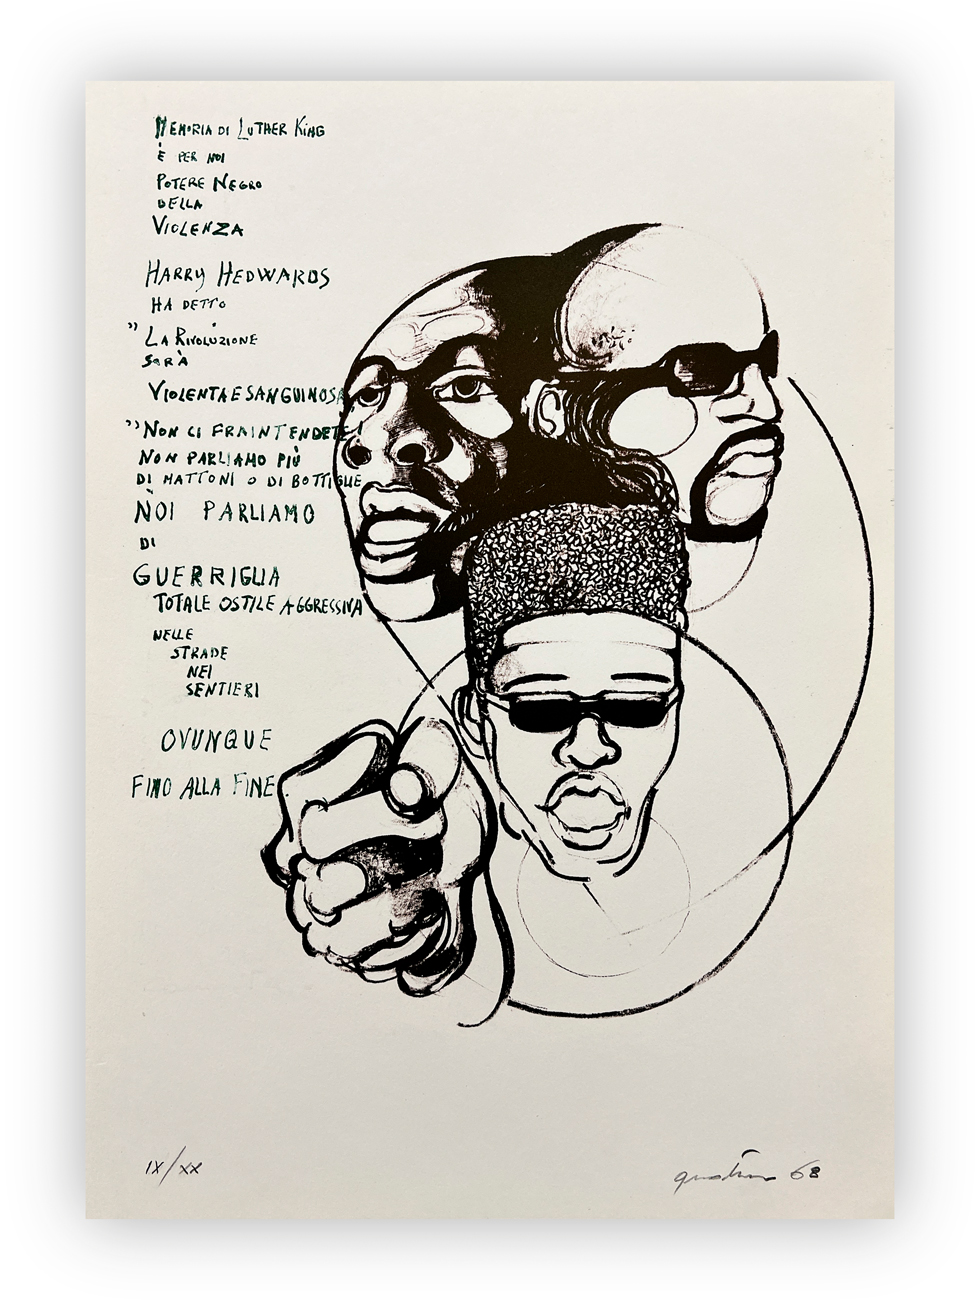 MEMORIA DI LUTHER KING
È PER NOI
POTERE NEGRO
DELLA
VIOLENZA
HARRY HEDWARDS
HA DETTO
"LA RIVOLUZIONE
SARÀ
VIOLENTA E SANGUINOSA
"NON CI FRAINTENDETE!
NON PARLIAMO PIÙ
DI MATTONI O DI BOTTIGLIE
NOI PARLIAMO
DI
GUERRIGLIA
TOTALE OSTILE AGGRESSIVA
NELLE
STRADE
NEI
SENTIERI
OVUNQUE
FINO ALLA FINE
IX/XX
68